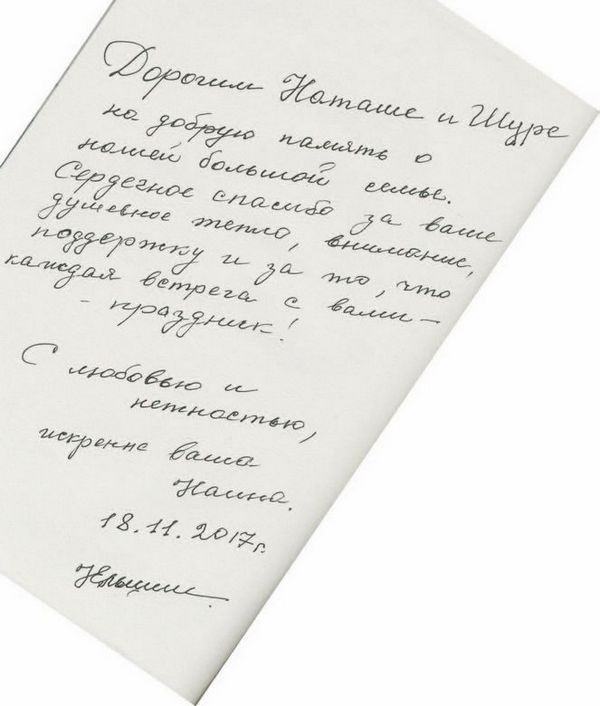 Дорогим Наташе и Шуре
на добрую память о
нашей большой семье.
Сердечное спасибо за ваше
душевное тепло, внимание,
поддержку и за то, что
каждая встреча с вами –
– праздник!
С любовью и
нежностью,
искренне ваша
Наина.
18.11.2017г.